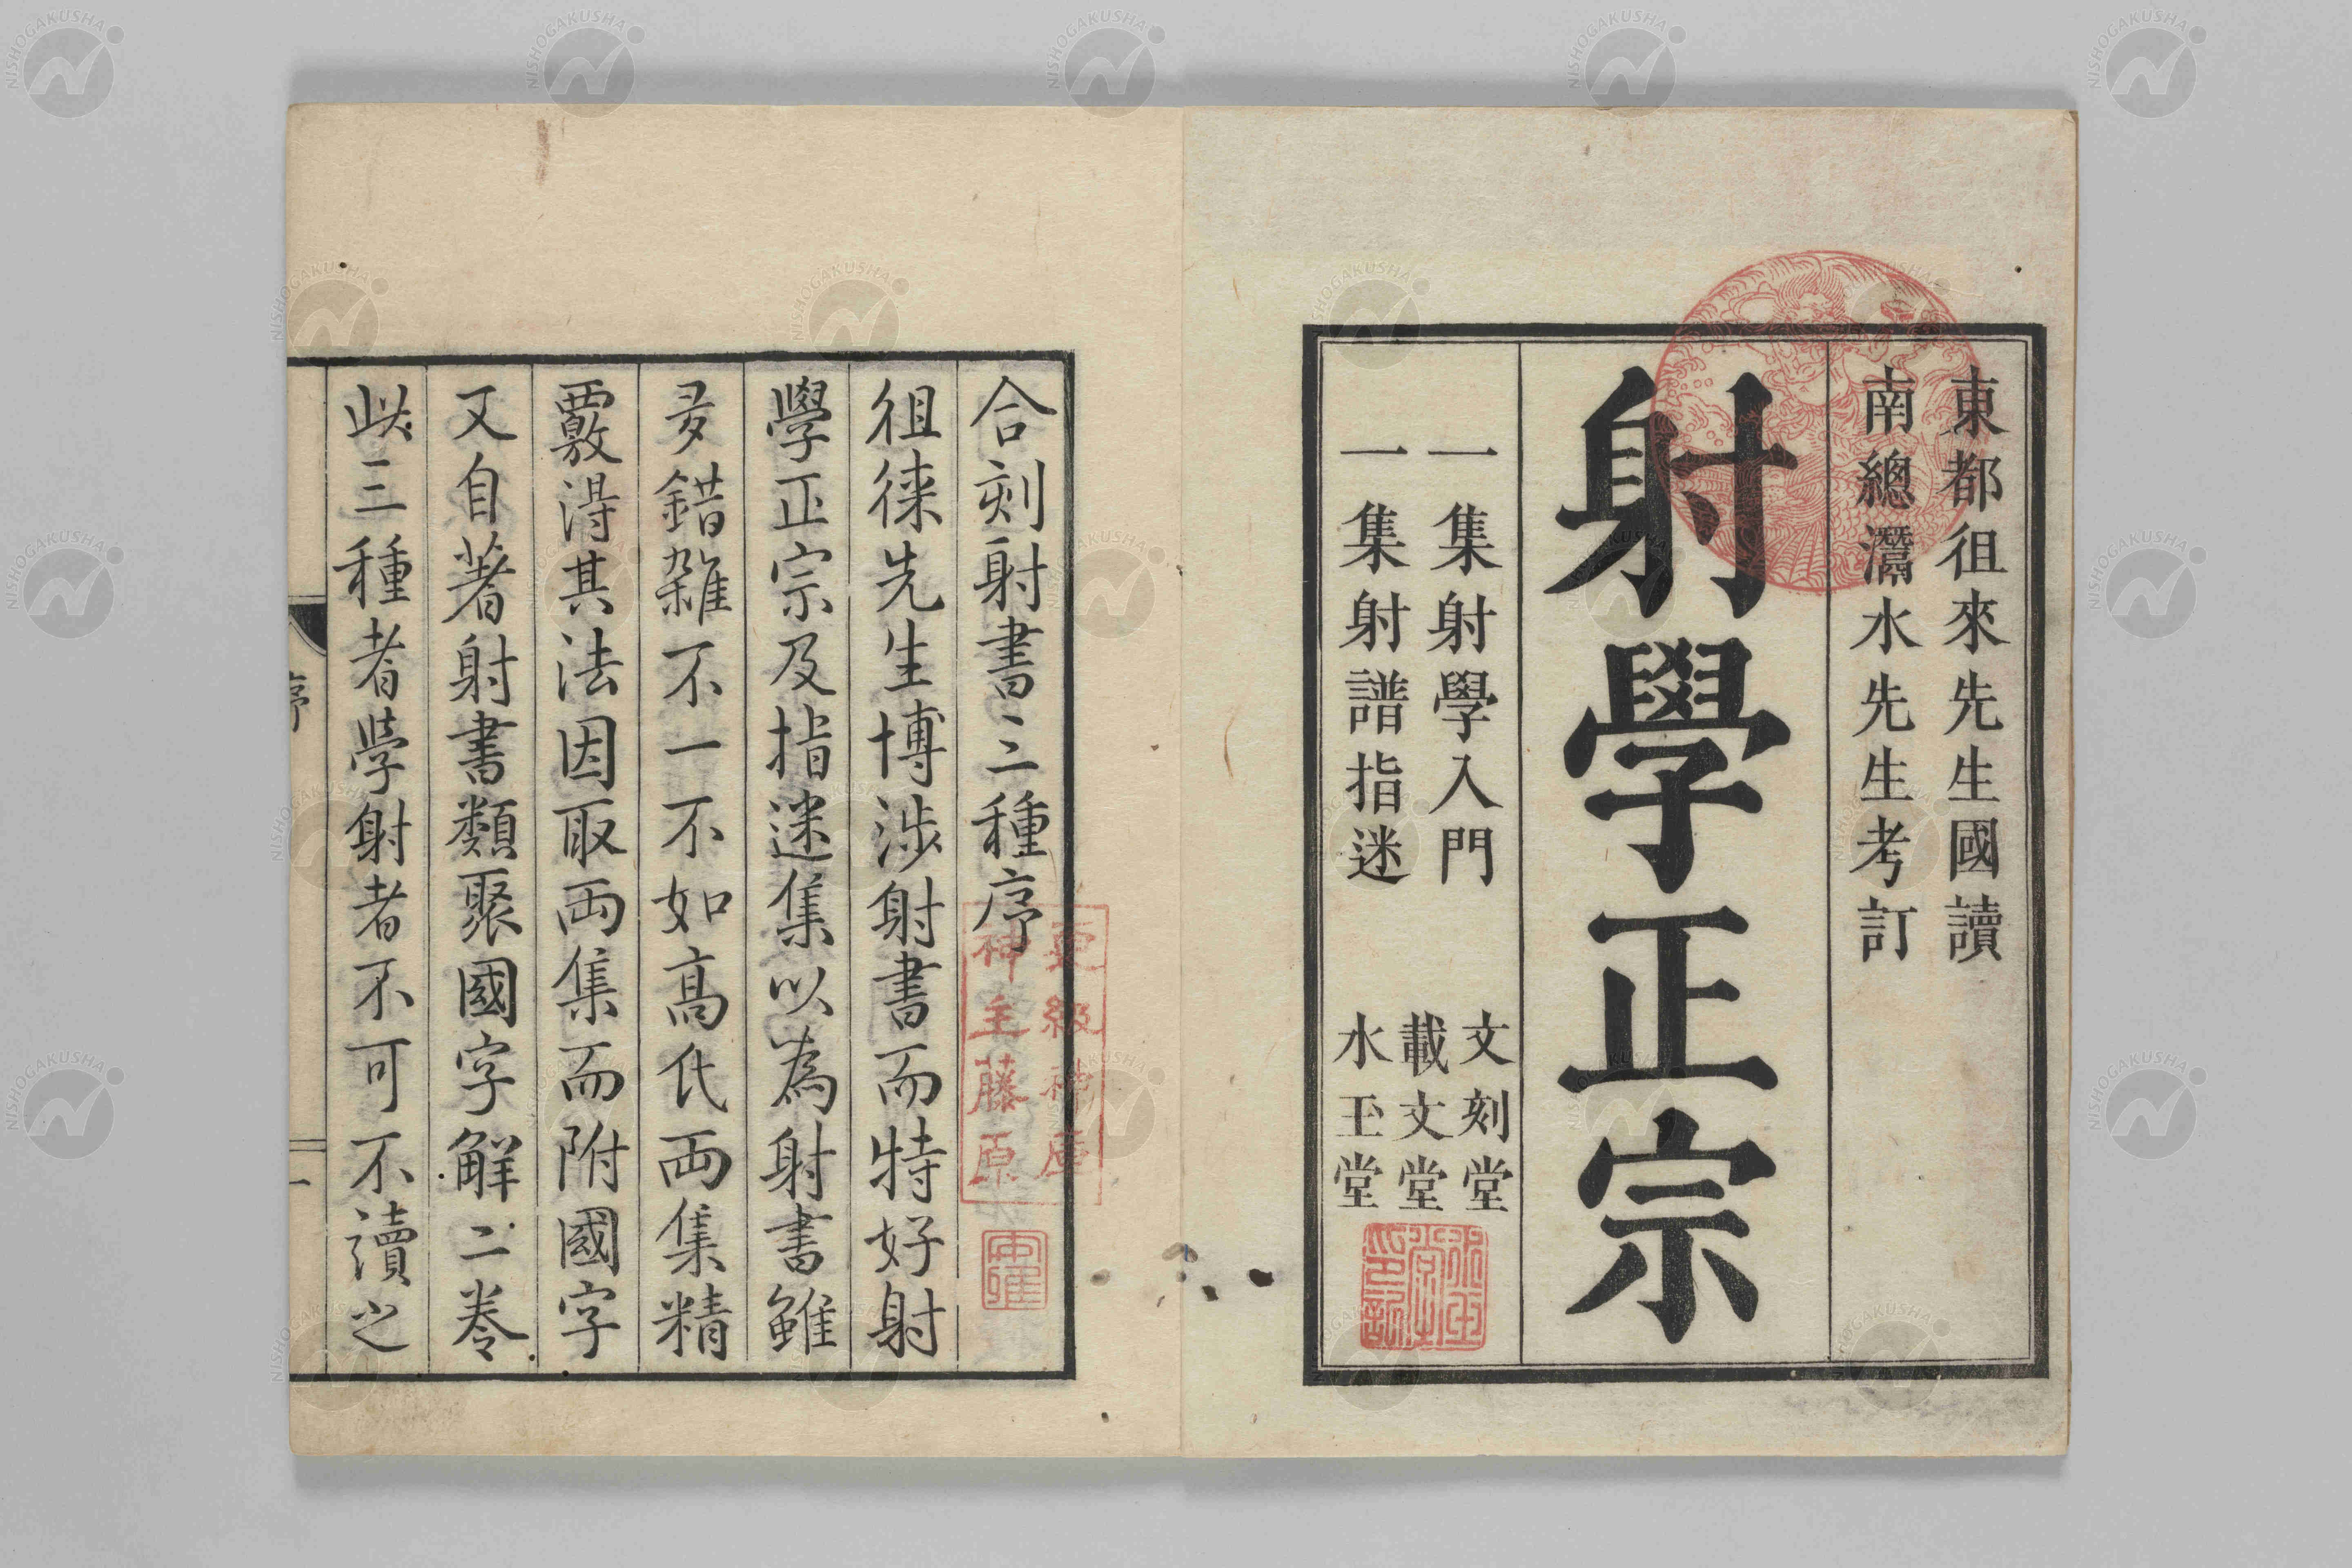 東都徂來先生國讀
南總灊水先生考訂
射學正宗
一集射學入門
一集射譜指迷
文刻堂
載文堂
水玉堂
水玉堂圖書記
合刻射書三種序
徂徠先生博涉射書而特好射
學正宗及指迷集以為射書雖
多錯雜不一不如高氏兩集精
覈淂其法因取兩集而附國字
又自著射書類聚國字解二卷
此三種者學射者不可不讀之
序
一
神主藤原
NISHOGAKUSHA